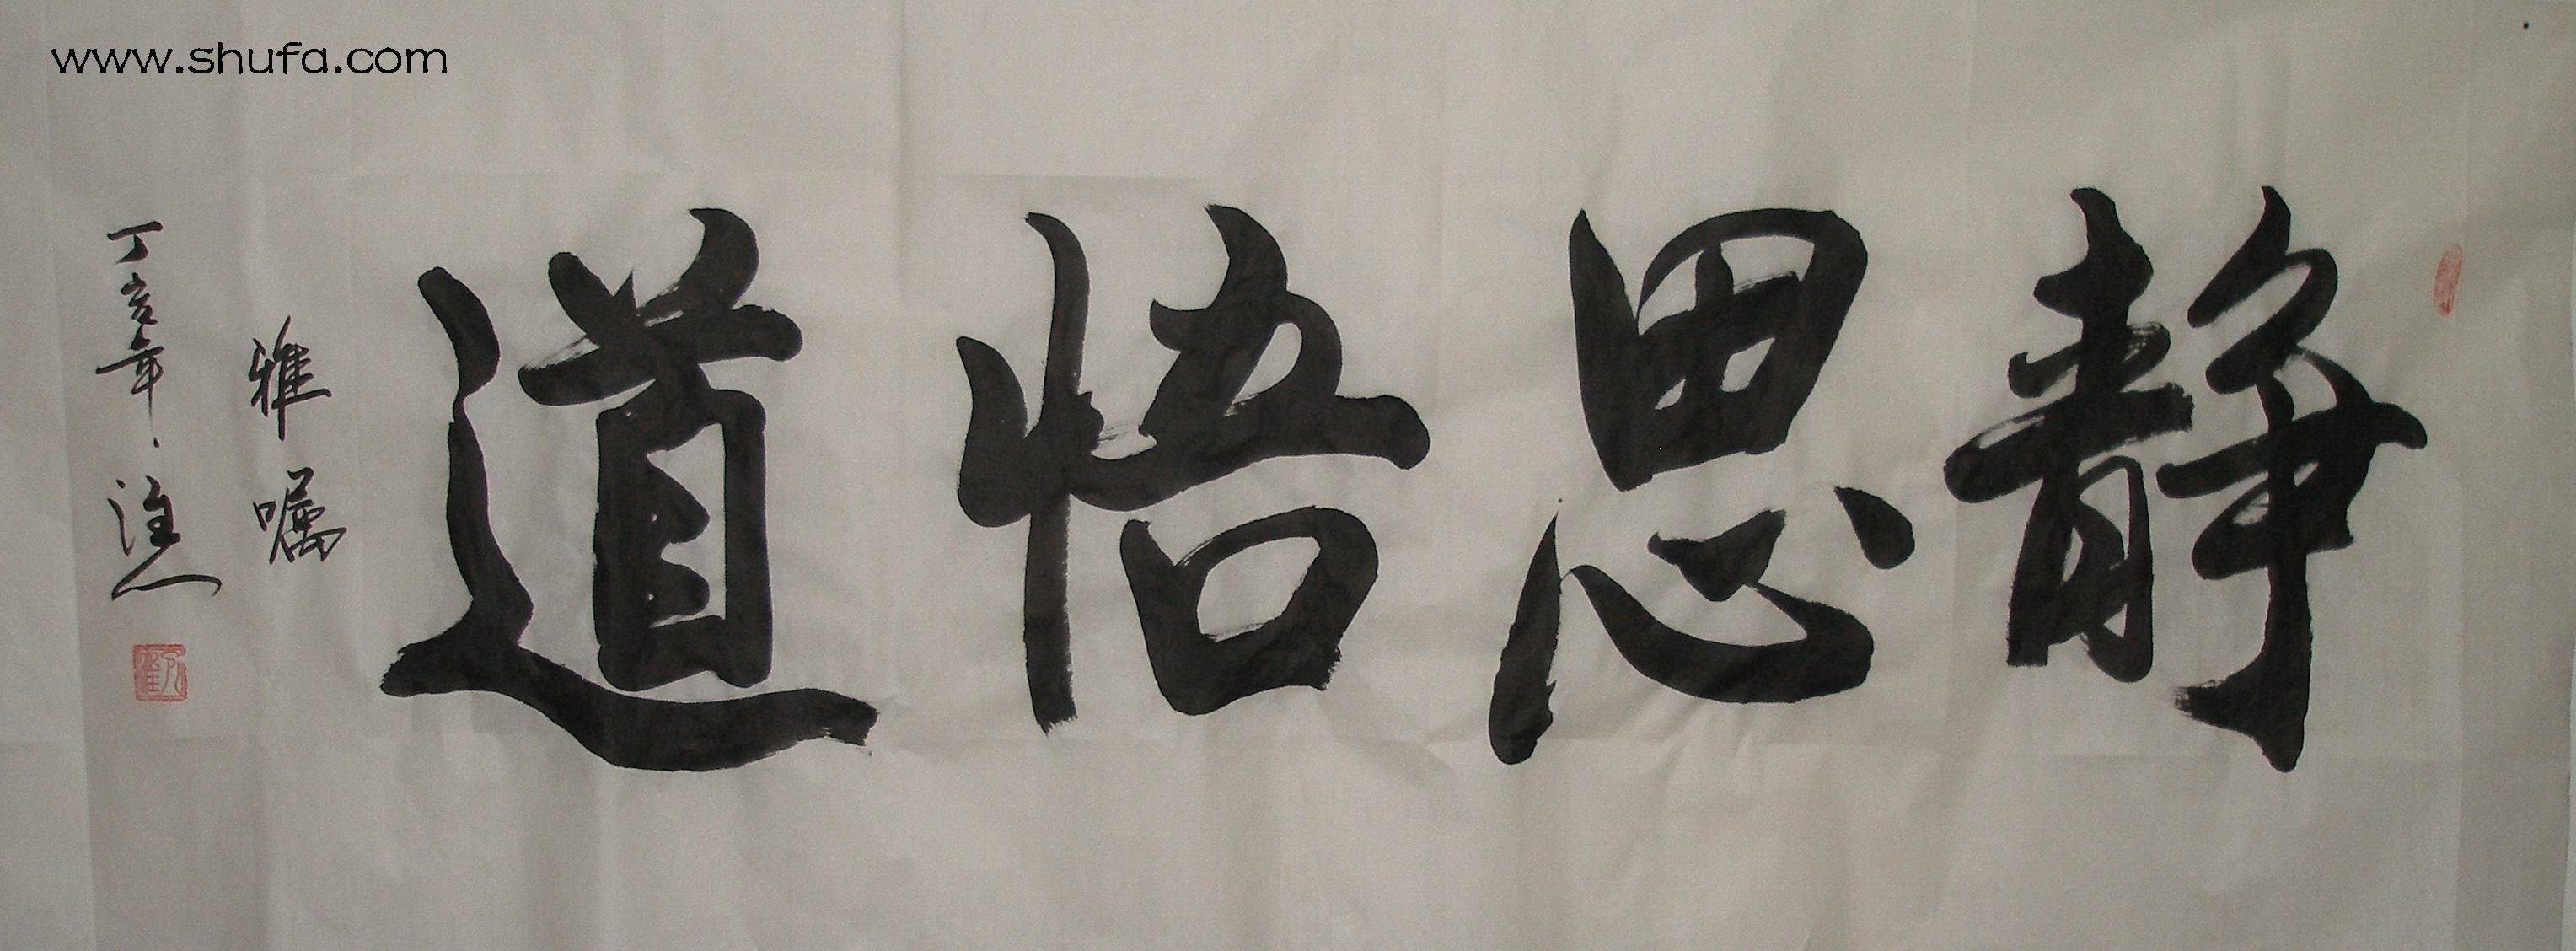 www.shufa.com
静思悟道
雅嘱
丁亥年